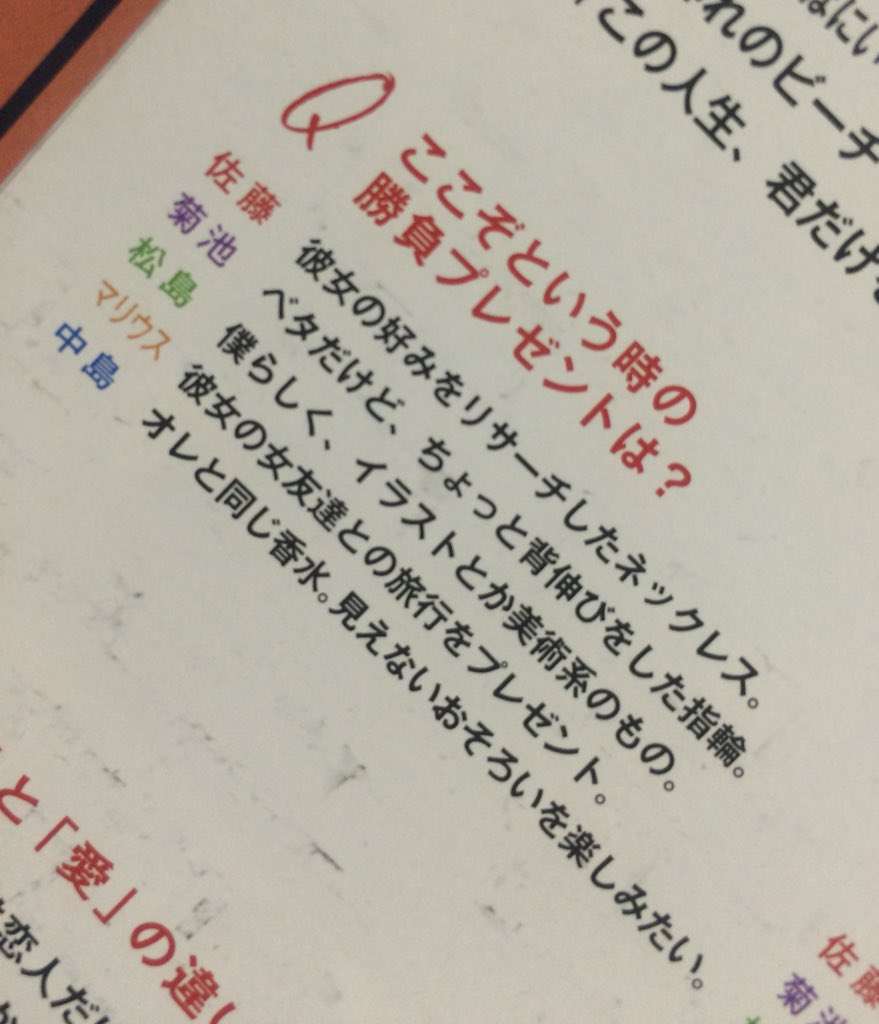 れのビーチ
この人生、君だけ
Q
ここぞという時の
勝負プレゼントは？
佐藤 彼女の好みをリサーチしたネックレス。
菊池 ベタだけど、ちょっと背伸びをした指輪。
松島 僕らしく、イラストとか美術系のもの。
マリウス 彼女の女友達との旅行をプレゼント。
中島 オレと同じ香水。見えないおそろいを楽しみたい。
と「愛」の違い
恋人だ
佐藤
菊池